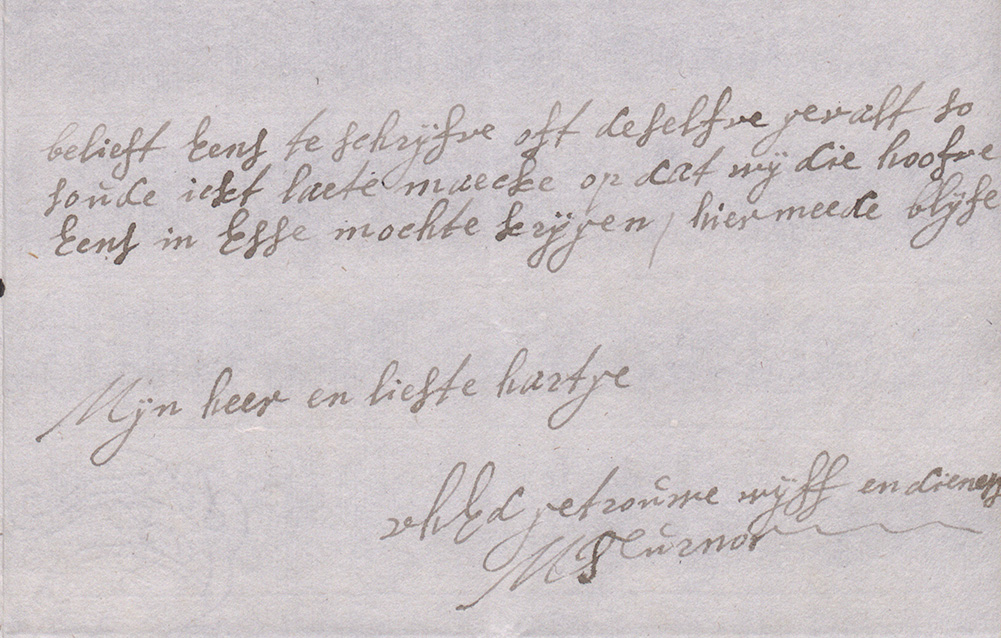 belieft Eens te schryfve oft deselfve gevalt so
soude ickt laete maecke op dat wy die hoofve
Eens in Esse mochte krygen / hier meede blyfe
Mijn heer en liefste hartge
UhEd getrouwe wyff en diener
M